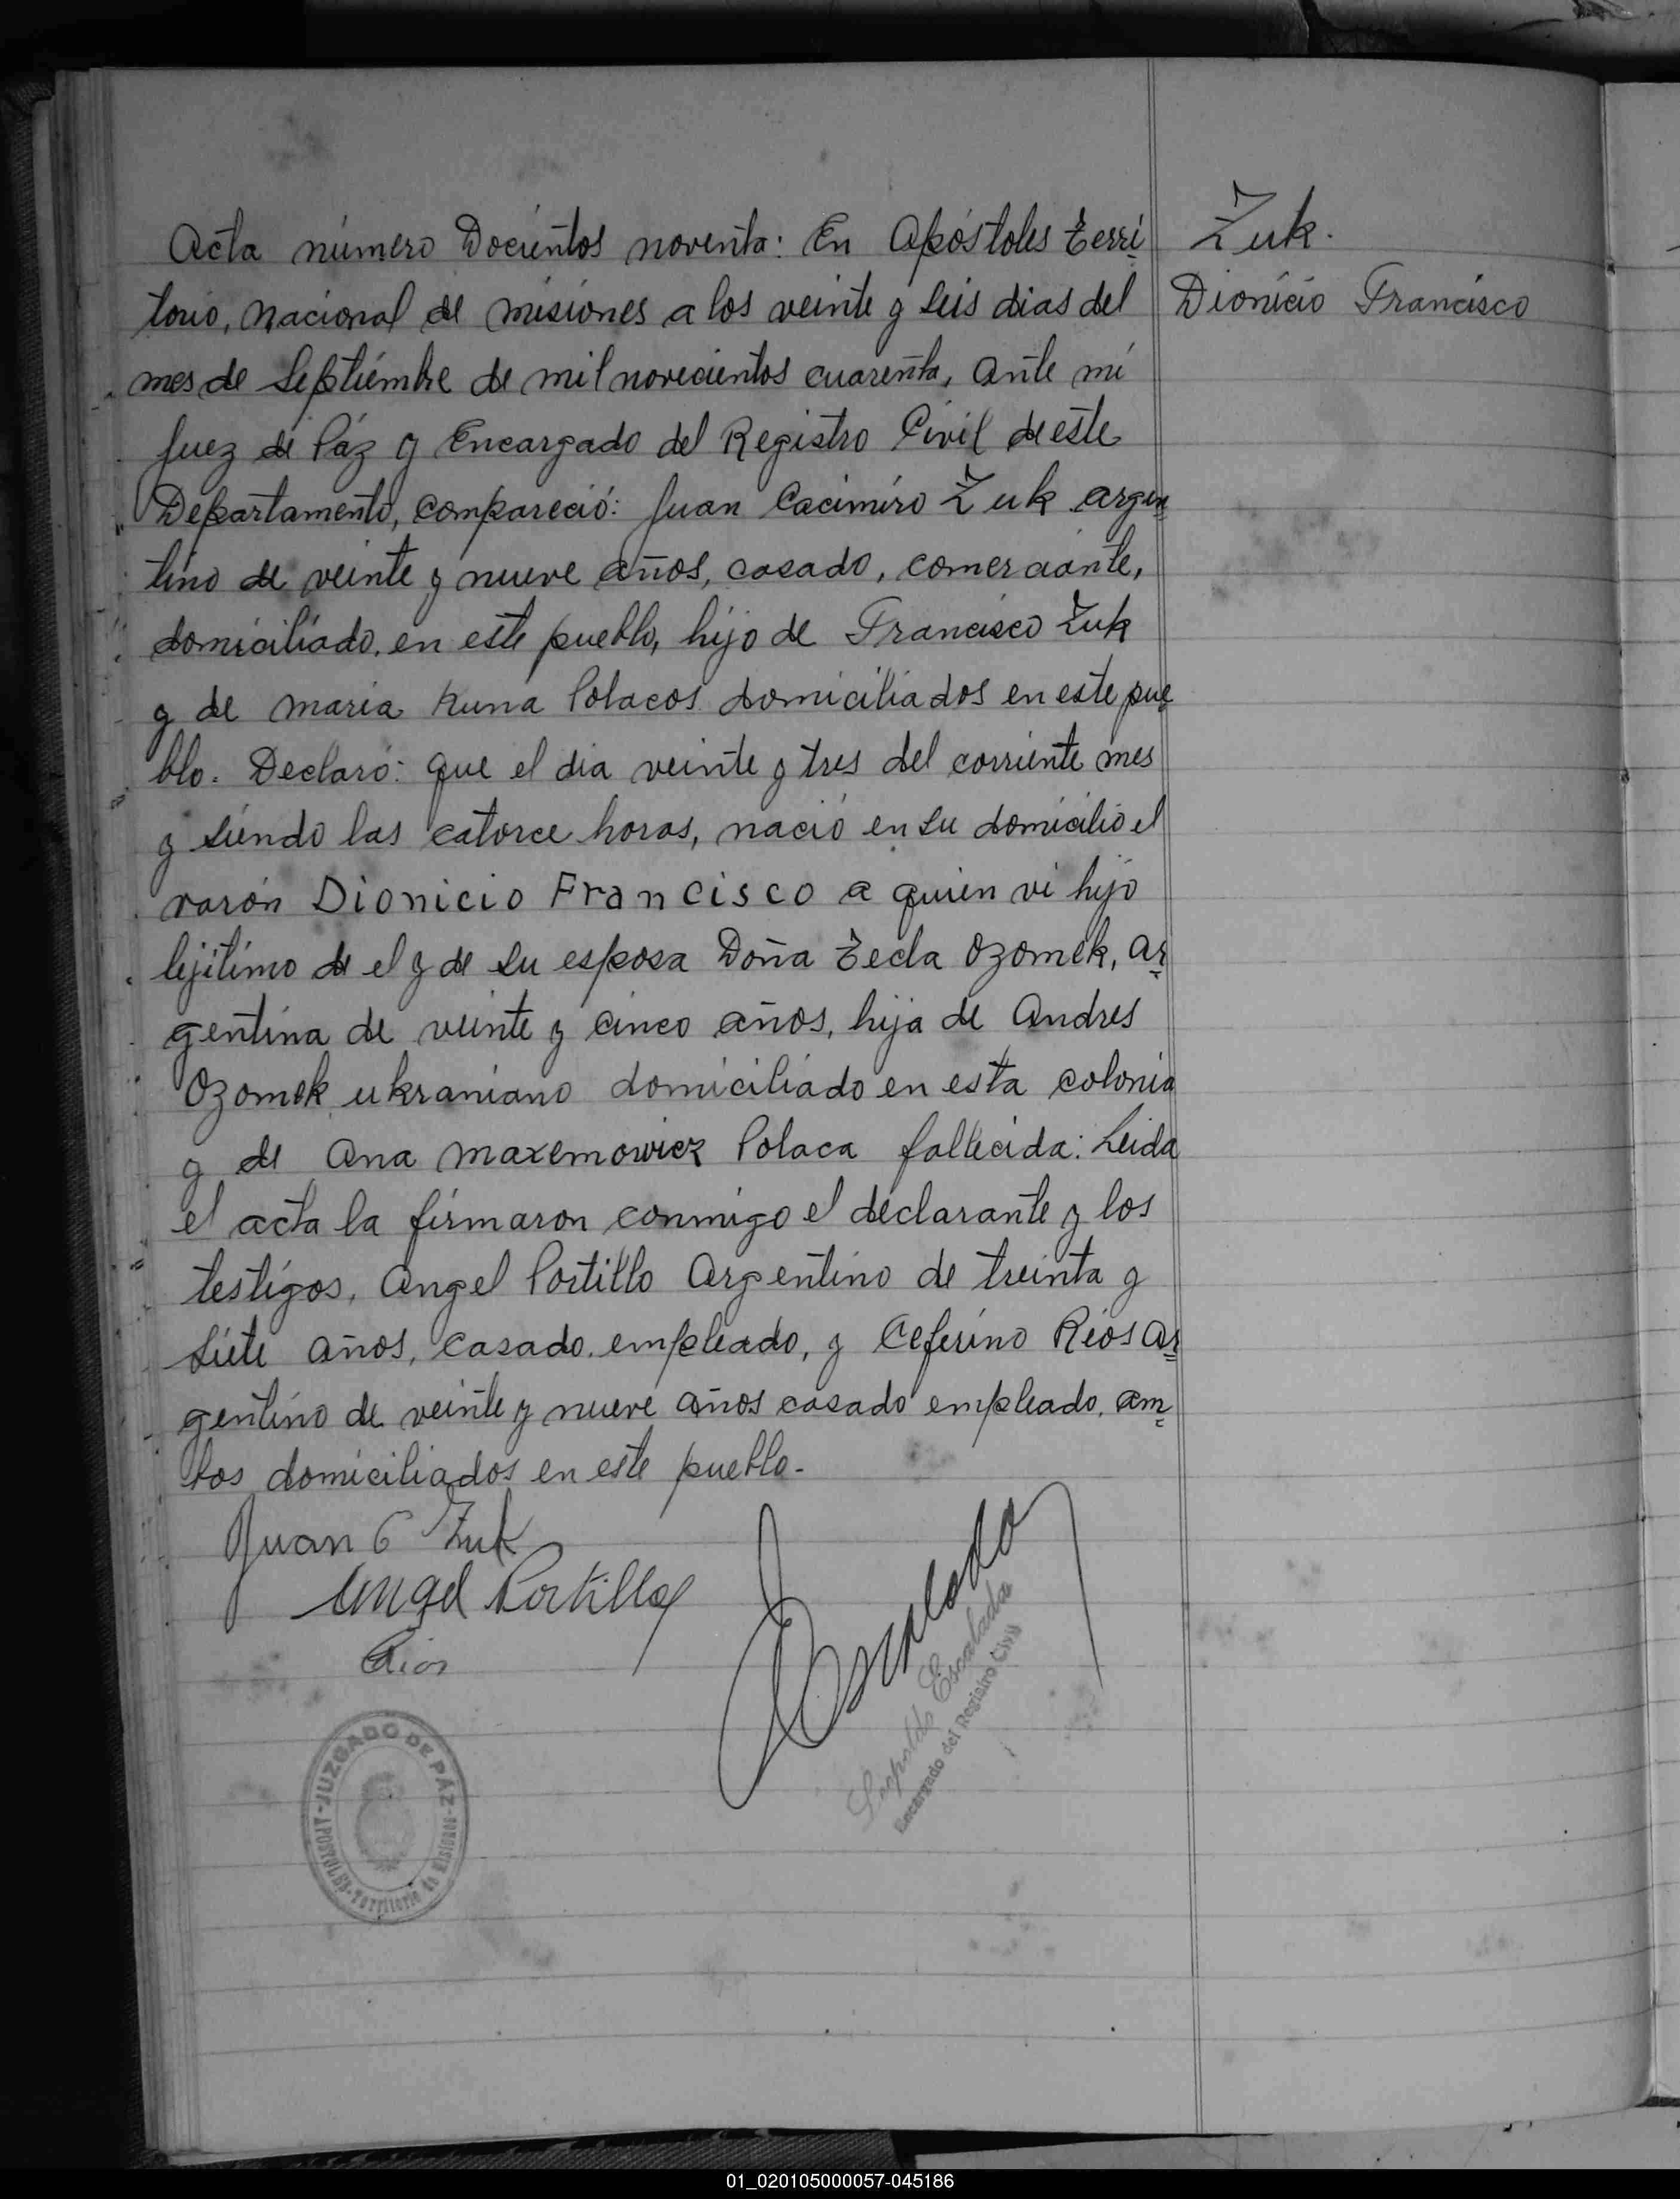 Acta número Docientos noventa: En Apóstoles Terri
torio, Nacional de Misiones a los veinte y seis dias del
mes de Septiembre de mil novecientos cuarenta, Ante mi
Juez de Páz y Encargado del Registro Civil de este
Departamento, compareció: Juan Cacimiro Zuk argen
tino de veinte y nueve años, casado, comerciante,
domiciliado, en este pueblo, hijo de Francisco Zuk
y de Maria Kuna Polacos domiciliados en este pue
blo. Declaró: que el dia veinte y tres del corriente mes
y siendo las catorce horas, nació en su domicilio el
varón Dionicio Francisco a quien vi hijo
lejitimo de el y de su esposa Doña Tecla Ozomek, Ar
gentina de veinte y cinco años, hija de Andres
Ozomek ukraniano domiciliado en esta colonia
y de Ana Maxemowicz Polaca fallecida: Leida
el acta la firmaron conmigo el declarante y los
testigos, Angel Portillo Argentino de treinta y
siete años, casado, empleado, y Ceferino Rios Ar
gentino de veinte y nueve años casado empleado, am
bos domiciliados en este pueblo.-
Zuk.
Dionicio Francisco
Juan C Zuk
Angel Portillo
Rios
Escalada
Leopoldo Escalada
Encargado del Registro Civil
JUZGADO DE PÁZ
APOSTOLES - Territorio de Misiones
01_020105000057-045186